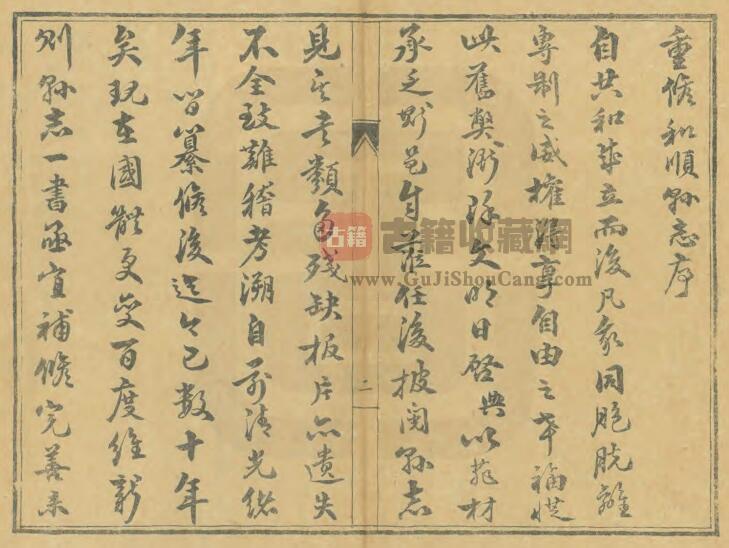 重修和順縣志序
自共和成立而後凡我同胞脫離
專制之威權得享自由之幸福從
此舊獘漸除文明日啓典以菲材
承乏斯邑自蒞任後披閱縣志
見其書類多殘缺板片亦遺失
不全致難稽考溯自前清光緒
年間纂修後迄今已數十年
矣現在國體更變百度維新
則縣志一書亟宜補修完善未
二
古籍收藏網
www.GuJiShouCang.com
古籍